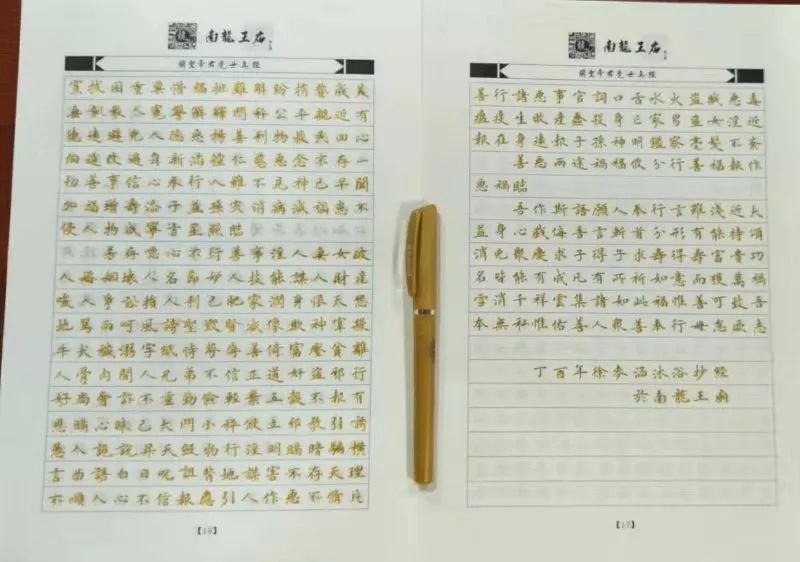 南龍王廟
關聖帝君覺世真經
寡救困重粟惜福排難解紛捐貲成美
垂訓教人冤讐解釋斗秤公平親近有
德遠避兇人隱惡揚善利物救民回心
向道改過自新滿腔仁慈惡念不存一
切善事信心奉行人雖不見神已早聞
加福增壽添子益孫災消病減禍患不
侵人物咸寧吉星照臨
若存惡心不行善事淫人妻女破
人婚姻壞人名節妒人技能謀人財產
唆人爭訟損人利己肥家潤身恨天怨
地罵雨呵風謗聖毀賢滅像欺神宰殺
牛犬穢溺字紙恃勢辱善倚富壓貧離
人骨肉間人兄弟不信正道奸盜邪淫
好尚奢詐不重勤儉輕棄五穀不報有
恩瞞心昧己大鬥小秤假立邪教引誘
愚人詭說昇天斂物行淫明瞞暗騙橫
言曲語白日咒詛背地謀害不存天理
不順人心不信報應引人作惡不修片
【16】
南龍王廟
關聖帝君覺世真經
善行諸惡事官詞口舌水火盜賊惡毒
瘟疫生敗產蠢殺身亡家男盜女淫近
報在身遠報子孫神明鑑察毫髮不紊
善惡兩途禍福攸分行善福報作
惡禍臨
吾作斯語願人奉行言雖淺近大
益身心戲侮吾言斬首分形有能持頌
消兇聚慶求子得子求壽得壽富貴功
名皆能有成凡有所祈如意而獲萬禍
雪消千祥雲集諸如此福惟善可致吾
本無私惟佑善人眾善奉行毋怠厥志
丁酉年徐參涵沐浴抄經
於南龍王廟
【17】